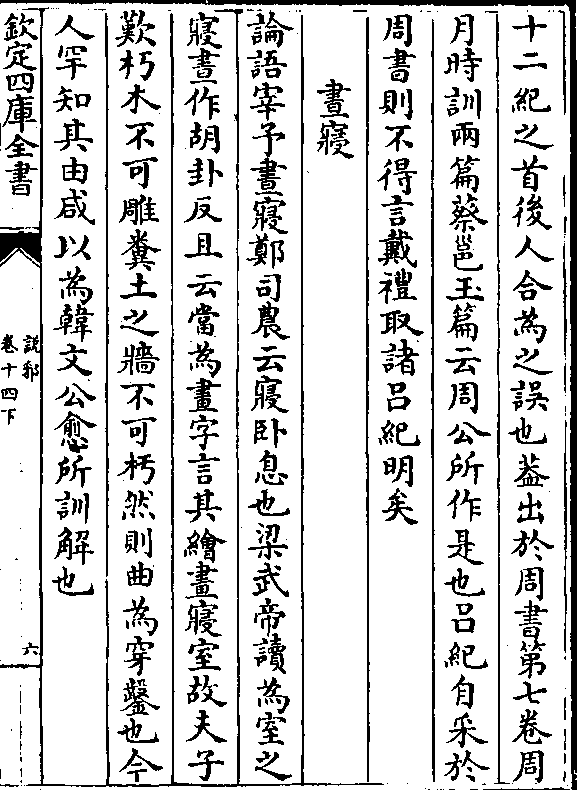 十二紀之首後人合為之誤也葢出於周書第七卷周
月時訓兩篇蔡邕玉篇云周公所作是也吕紀自采於
周書則不得言戴禮取諸吕紀明矣
晝寢
論語宰予晝寢鄭司農云寢卧息也梁武帝讀為室之
寢晝作胡卦反且云當為畫字言其繪畫寢室故夫子
歎朽木不可雕糞土之牆不可杇然則曲為穿鑿也今
人罕知其由咸以為韓文公愈所訓解也
欽定四庫全書
説郛
卷十四下
六